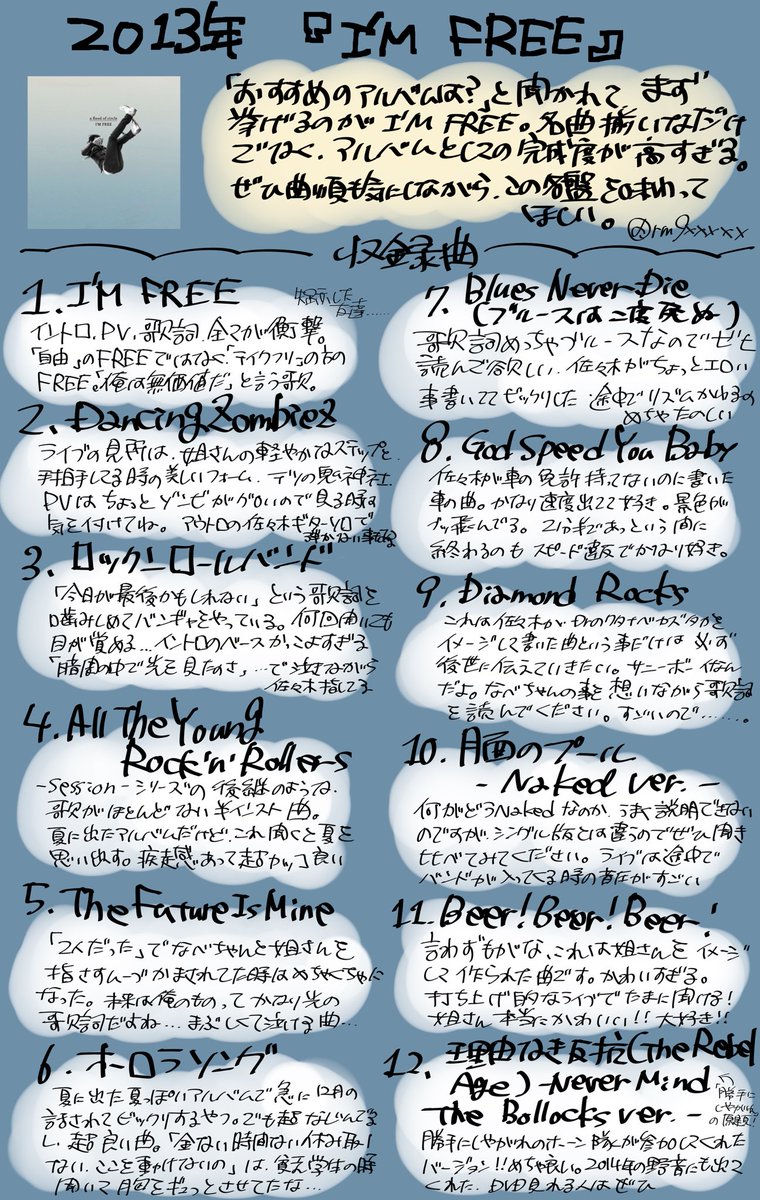 2013年 『I'M FREE』
a flood of circle
I'M FREE
「おすすめのアルバムは?」と聞かれて まず
挙げるのが I'M FREE。名曲揃いなだけ
でなく、アルバムとしての完成度が高すぎる。
ぜひ曲順も気にしながら、この名盤を味わって
ほしい。
@rm9xxxxx
収録曲
1. I'M FREE
イントロ、PV、歌詞、全てが衝撃。
「自由」のFREEではなく「テイクフリー」の方の
FREE。「俺は無価値だ」と言う歌。
2. Dancing Zombiez
ライブの見所は、姐さんの軽やかなステップと、
してる時の美しいフォーム。テツの鬼神社
PVはちょっとゾンビがグロいので見る時は
気を付けてね。アウトロの佐々木ギターソロで
弾かない事もある
3. ロックンロールバンド
「今日が最後かもしれない」という歌詞を
噛みしめてバンギャをやっている。何回聞いても
目が覚める…イントロのベースかっこよすぎる
「暗闇の中で光を見たのさ」…で泣きながら
佐々木指してる
4. All The Young
Rock'n'Rollers
-Session-シリーズの後継のような、
歌がほとんどない半インスト曲。
夏に出たアルバムだけど、これ聞くと夏を
思い出す。疾走感あって超カッコ良い
5. The Future Is Mine
「2人だった」でなべちゃんと姐さんを
指さすムーブかまされてた時はめちゃくちゃに
なった。未来は俺のもの、ってかなり光の
歌詞だよね…まぶしくて泣ける曲…
6. オーロラソング
夏に出た夏っぽいアルバムで急に12月の
話されてビックリするやつ。でも超なじんでる
し、超良い曲。「金ない時間ない休み取れ
ない、ここを動けないの」は、貧乏学生の時
聞いて胸をギュっとさせてたな…
7. Blues Never Die
(ブルースは二度死ぬ)
歌詞めっちゃブルースなのでぜひ
読んで欲しい、佐々木がちょっとエロい
事書いててビックリした 途中でリズムかわるの
めちゃたのしい
8. God Speed You Baby
佐々木が車の免許持てないのに書いた
車の曲。かなり速度出てて好き。景色が
ブッ飛んでる。2分半であっという間に
終わるのもスピード違反でかなり好き。
9. Diamond Rocks
これは佐々木がDrのワタナベカズタカを
イメージして書いた曲という事だけは必ず
後世に伝えていきたい。サニーボーイなん
だよ。なべちゃんの事を想いながら歌詞
を読んでください。すごいので……。
10. 月面のプール
- Naked ver. -
何がどうNakedなのか、うまく説明できない
のですが、シングル版とは違うのでぜひ聞き
比べてみてください。ライブは途中で
バンドが入ってくる時の音圧がすごい
11. Beer! Beer! Beer!
言わずもがな、これは姐さんをイメージ
して作られた曲です。かわいすぎる。
打ち上げ的なライブでたまに聞ける!
姐さん本当にかわいい!!大好き!!
12. 理由なき反抗 (The Rebel
Age) -Never Mind
The Bollocks ver. -
「勝手に
しやがれ」の
原題!
勝手にしやがれのホーン隊が参加してくれた
バージョン!!めちゃ良い。2014年の野音にも出て
くれた。DVD見れる人はぜひ